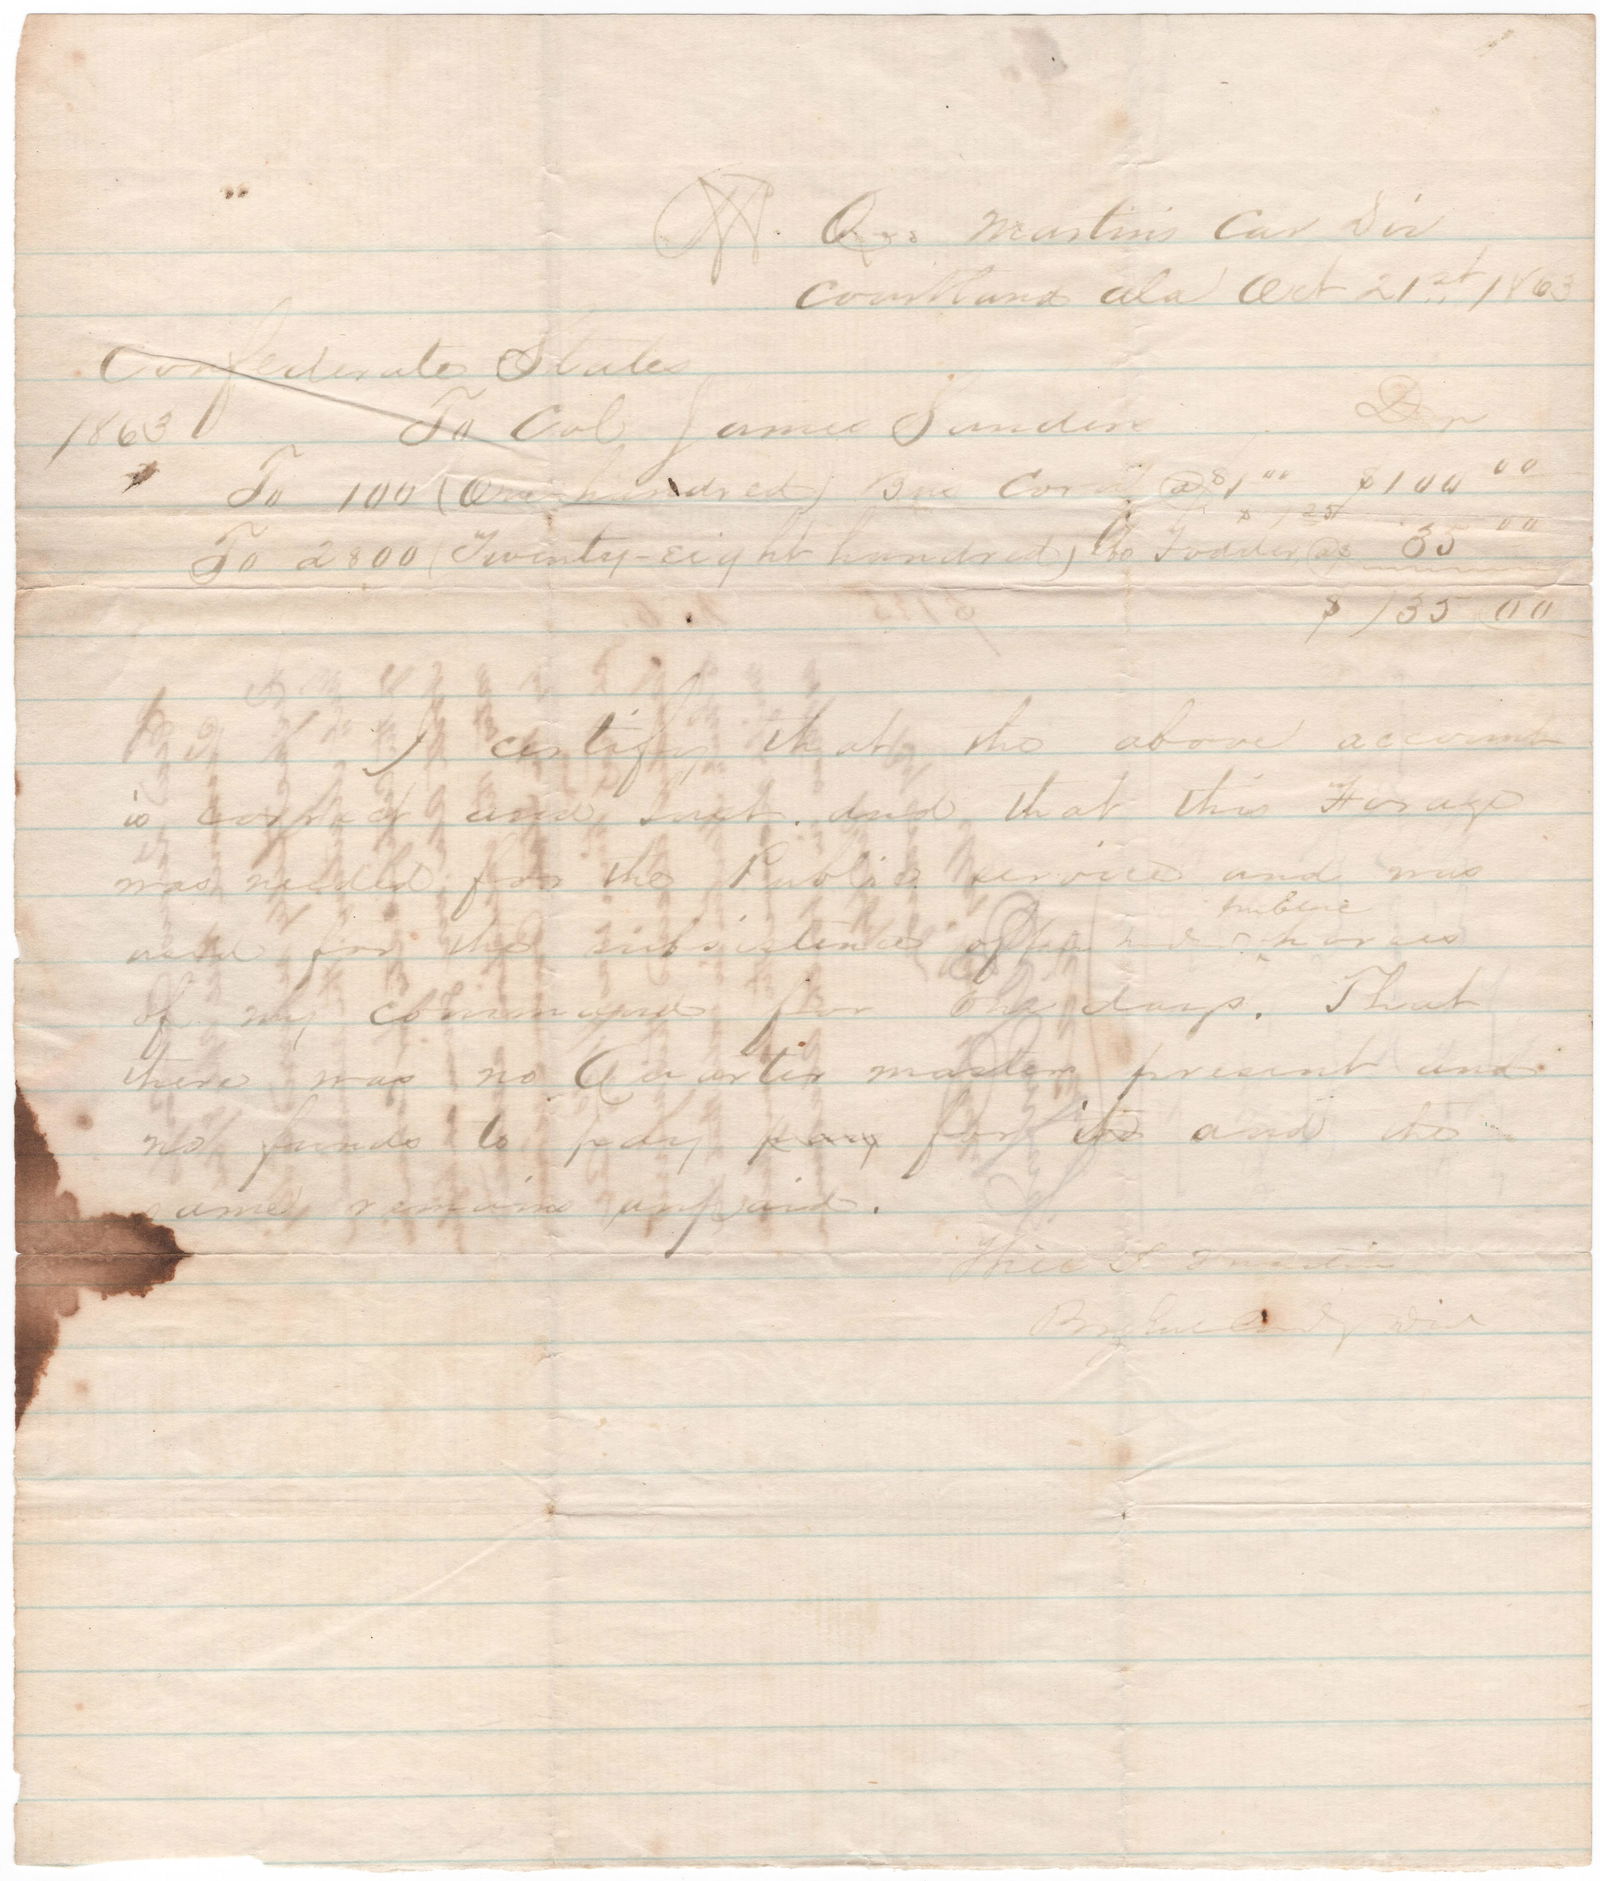 Hd. Qrs Martins Cav Div
Courtland Ala Oct 21st 1863
Confederate States
1863 To Col James Sanders Dr
" To 100 (One hundred) Bus Corn @ $1 00 $100 00
$1 25
To 2800 (Twenty-eight hundred) lbs Fodder @ 35 00
$ 135 00
I certify that the above account
is correct and just. and that this Forage
was needed for the Public service and was
public
used for the subsistence of horses
of my command for One days. That
there was no Quarter master present and
no funds to pay for it and the
same remains unpaid.
Will T Martin
Cavy Div